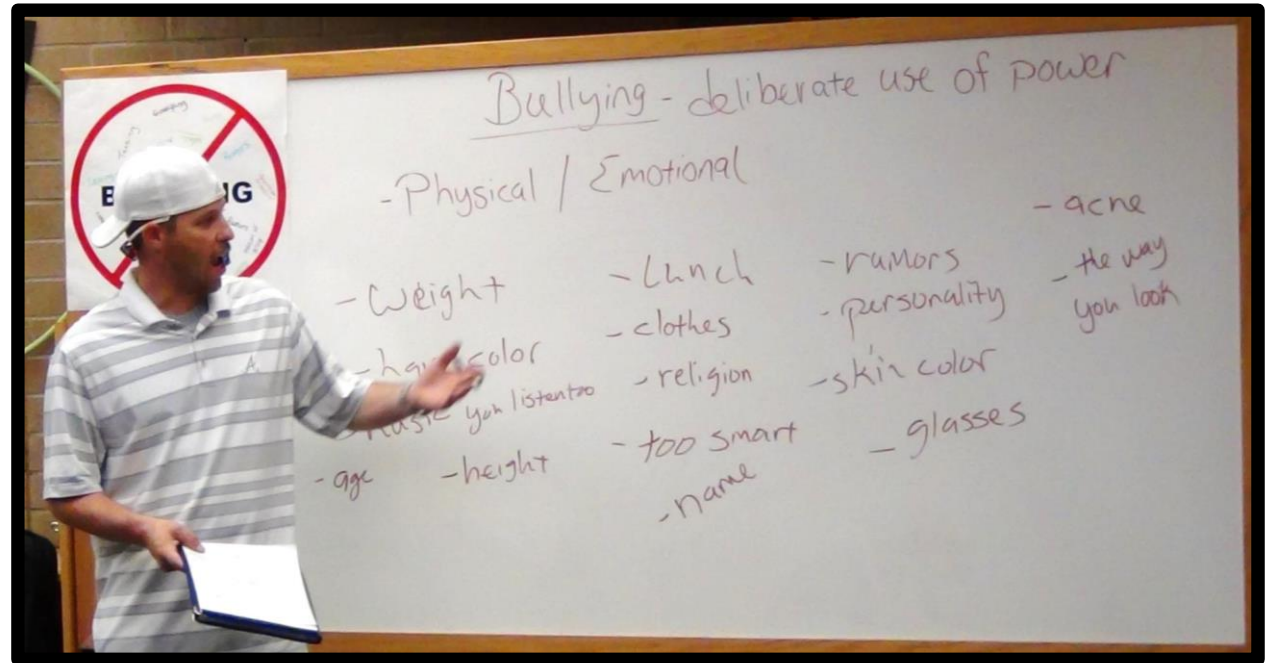 Bullying - deliberate use of power
- Physical / Emotional
- Weight
- hair color
- music you listen too
- age - height
- Lunch
- clothes
- religion
- too smart
- name
- rumors
- personality
- skin color
- glasses
- acne
- the way
you look
B NG